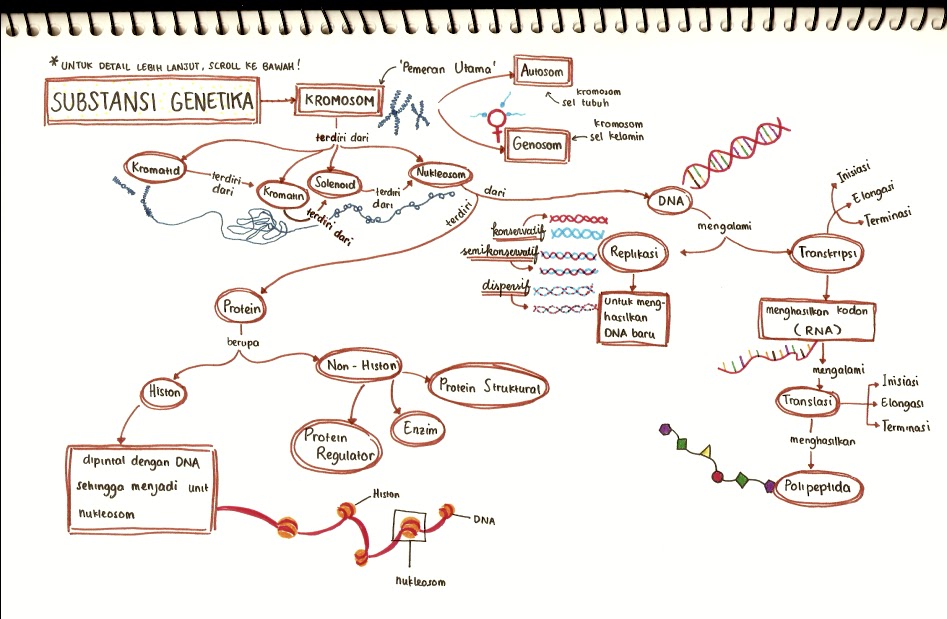 * UNTUK DETAIL LEBIH LANJUT, SCROLL KE BAWAH!
SUBSTANSI GENETIKA
KROMOSOM
'Pemeran Utama'
Autosom
kromosom
sel tubuh
Genosom
kromosom
sel kelamin
terdiri dari
Kromatid
terdiri
dari
Kromatin
terdiri dari
Solenoid
terdiri
dari
Nukleosom
terdiri
dari
DNA
mengalami
Replikasi
konservatif
semikonservatif
dispersif
Untuk meng-
hasilkan
DNA baru
Transkripsi
Inisiasi
Elongasi
Terminasi
menghasilkan kodon
(RNA)
mengalami
Translasi
Inisiasi
Elongasi
Terminasi
menghasilkan
Polipeptida
Protein
berupa
Histon
Non - Histon
Protein Struktural
Enzim
Protein
Regulator
dipintal dengan DNA
sehingga menjadi unit
nukleosom
Histon
DNA
nukleosom